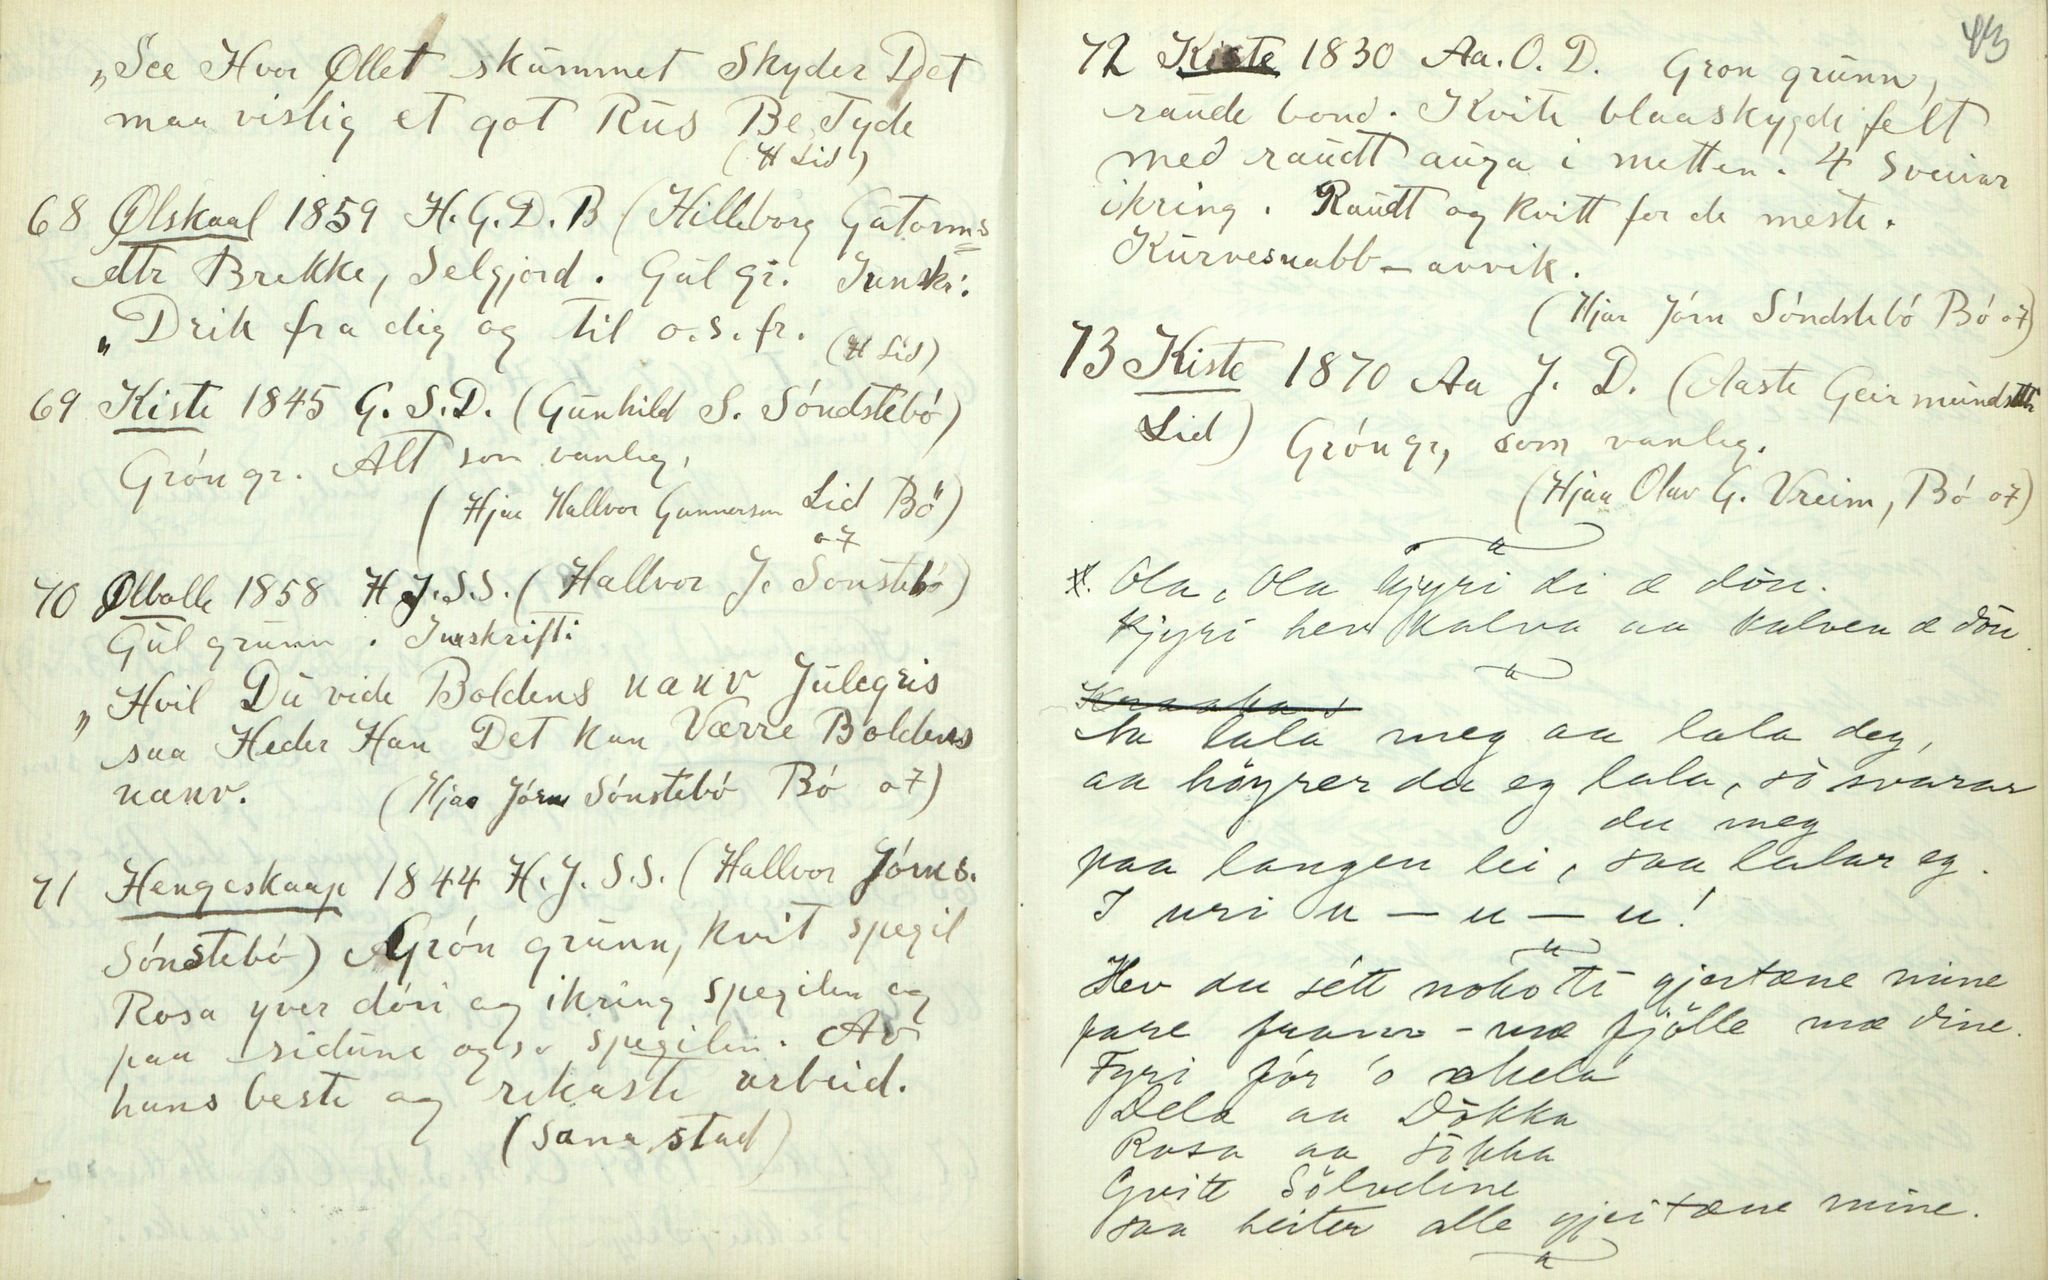 „See Hvor Øllet skummet Skyder Det
maa vislig et got Rus Be Tyde
(H Lid)
68 Ølskaal 1859 H. G. D. B (Hilleborg Gutorms
dtr Brekke, Selgjord. Gul gr. Innskr:
„Drik fra dig og til o.s.fr. (H Lid)
69 Kiste 1845 G. S. D. (Gunhild S. Sóndstebó)
Grón gr. Alt som vanleg,
(Hjaa Hallvor Gunnerson Lid Bö)
o7
70 Ølbolle 1858 H. J. S. S. (Hallvor J. Sonstebó)
Gul grunn. Innskrift:
„Hvil Du vide Boldens nanv Julegris
saa Heder Han Det kan Værre Boldens
nanv. (Hjaa Jórn Sónstebó Bó o7)
71 Hengeskaap 1844 H. J. S. S. (Hallvor Jórns.
Sónstebó) Grón grunn, kvit spegil
Rosa yver dóri og ikring spegilen og
paa sidune ogso spegilen. Av
hans beste og rikaste arbeid.
(Sanastad)
43
72 Kiste 1830 Aa. O. D. Gron grunn,
raude bond. Kvite blaaskygde felt
med raudt auga i mitten. 4 Sveivar
ikring. Raudt og kvitt for de meste.
Kurvesnabb – avvik.
(Hjaa Jórn Sóndstebó Bó o7)
73 Kiste 1870 Aa J. D. (Aaste Geirmundsdtr
Lid) Grón gr, som vanleg.
(Hjaa Olav G. Vreim, Bó o7)
Ola, Ola kjyri di æ dön.
kjyri hev kalva aa kalven æ dön.
Aa lala meg aa lala deg,
aa höyrer du eg lala, só svarar
du meg
paa langen lei, saa lalar eg.
I uri u – u – u!
Hev du sétt noko ti gjeitæne mine
fare fram – mæ fjölle mæ dine.
Fyri fór 'o
Dela aa Dökka
Rosa aa Sökka
Gvite Sölveline
saa heiter alle gjeitæne mine.